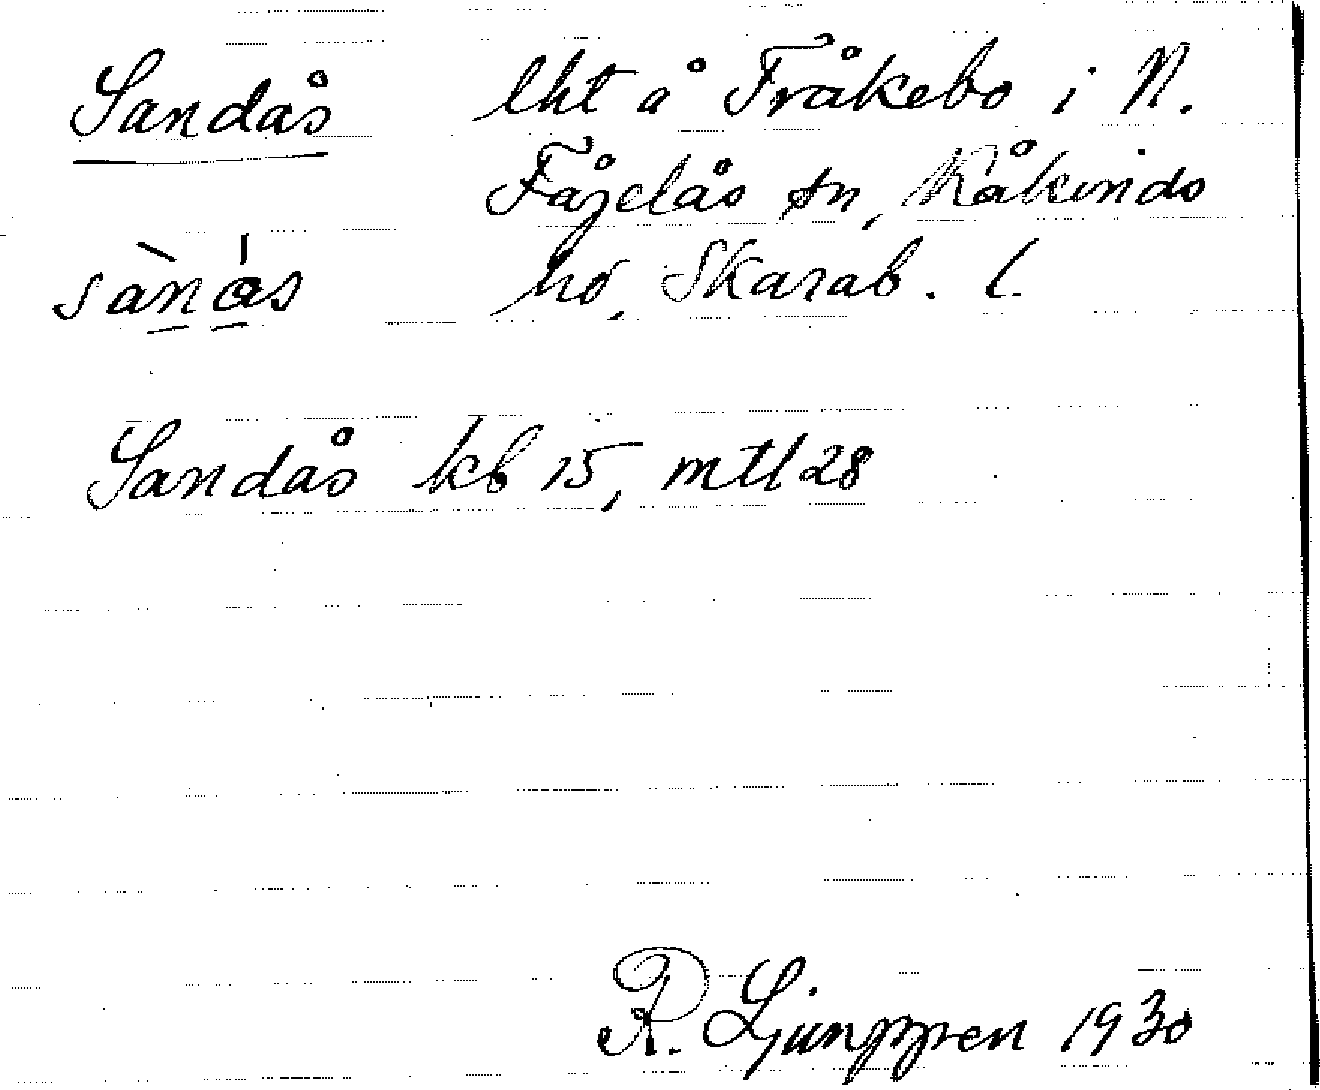 Sandås lht å Fråkebo i N.
Fågelås sn, Kåkinds
sànås hd, Skarab. l.
Sandås kb 15, mtl 28
R. Ljunggren 1930